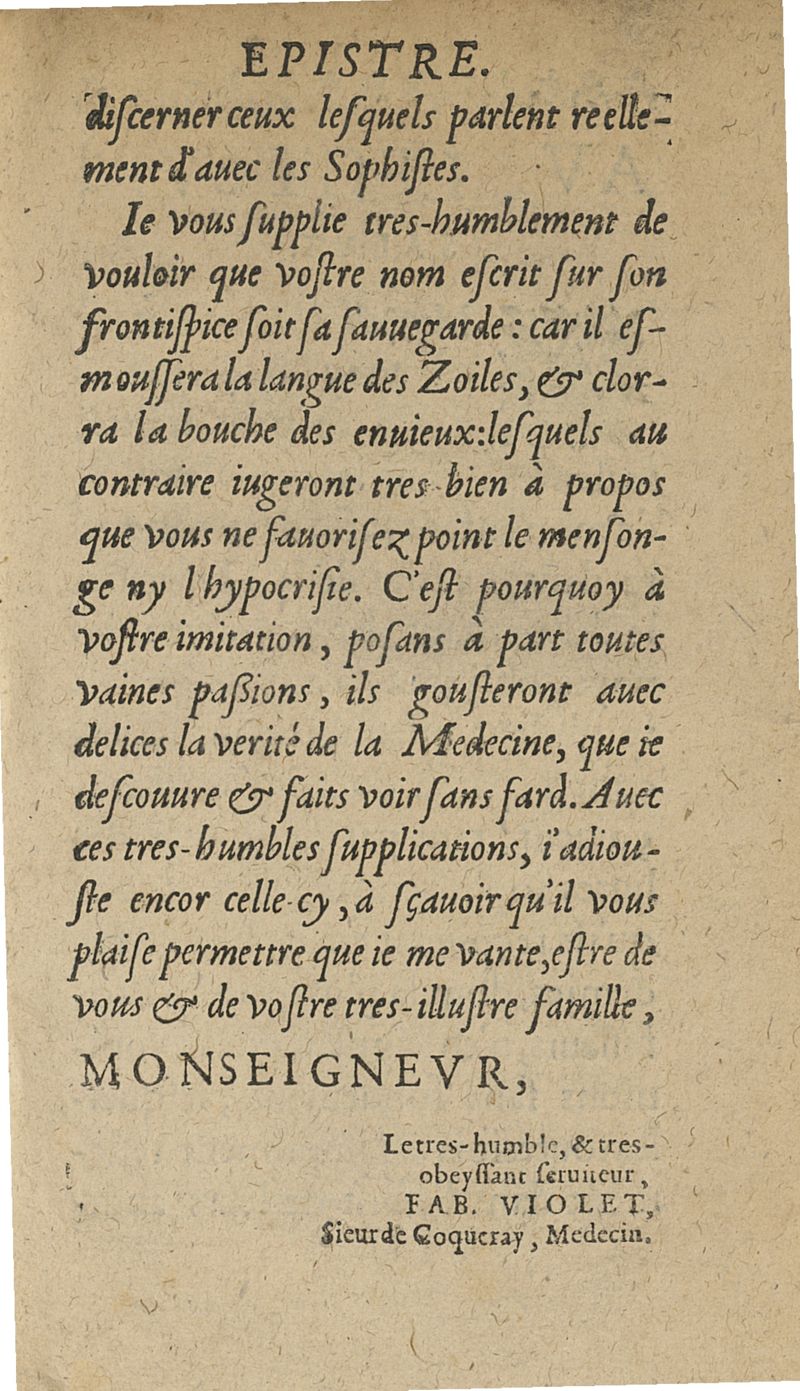 EPISTRE.
diſcerner ceux leſquels parlent reelle-
ment d'auec les Sophiſtes.
Ie vous ſupplie tres-humblement de
vouloir que voſtre nom eſcrit ſur ſon
frontiſpice ſoit ſa ſauuegarde : car il eſ-
mouſſera la langue des Zoiles, & clor-
ra la bouche des enuieux: leſquels au
contraire iugeront tres-bien à propos
que vous ne fauoriſez point le menſon-
ge ny l'hypocriſie. C'eſt pourquoy à
voſtre imitation, poſans à part toutes
vaines paßions, ils gouſteront auec
delices la verité de la Medecine, que ie
deſcouure & faits voir ſans fard. Auec
ces tres-humbles ſupplications, i'adiou-
ſte encor celle-cy, à ſçauoir qu'il vous
plaiſe permettre que ie me vante, eſtre de
vous & de voſtre tres-illuſtre famille,
MONSEIGNEVR,
Le tres-humble, & tres-
obeyſſant ſeruiteur,
FAB. VIOLET,
Sieur de Coqueray, Medecin.